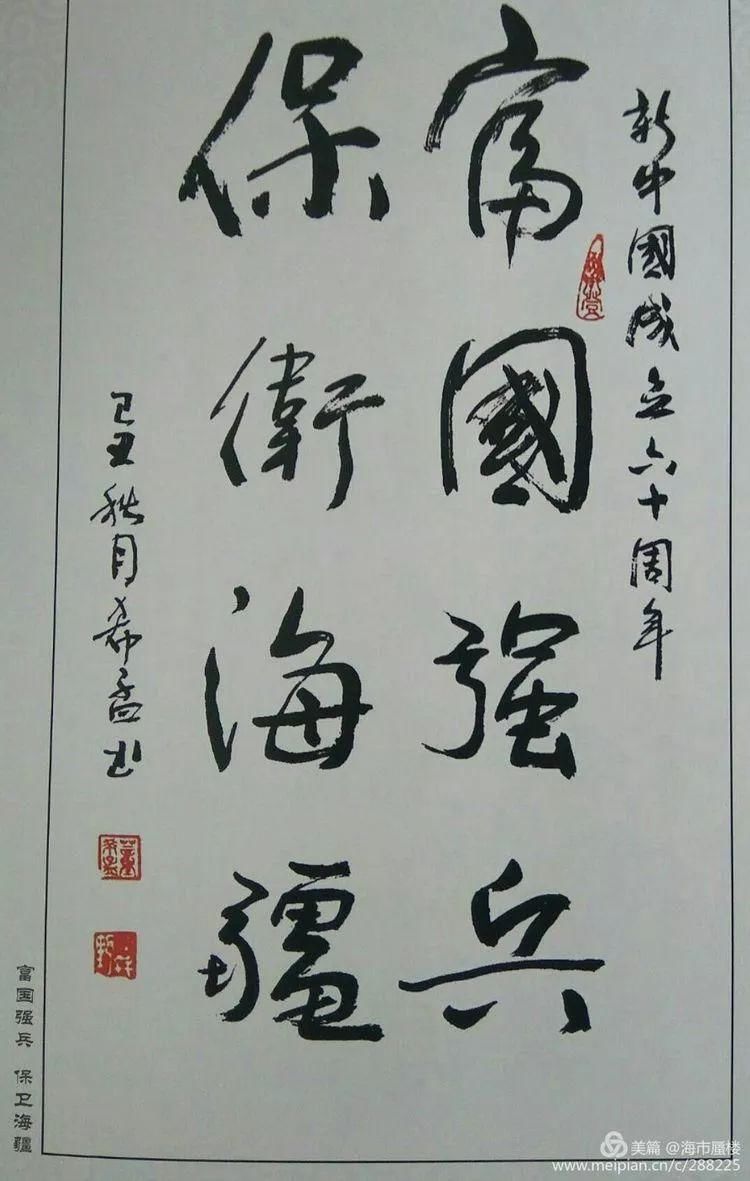 新中國成立六十周年
富國強兵
保衛海疆
己丑秋月希孟书
董希孟
富国强兵 保卫海疆
美篇 @海市蜃楼
www.meipian.cn/c/288225